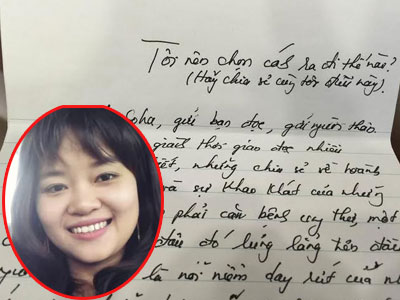 Tôi nên chọn cách ra đi thế nào?
(Hãy chia sẻ cùng tôi điều này).
Soha, gửi bạn đọc, gửi
giành thời gian đọc nhiều
viết, những chia sẻ về hoành
và sự khao khát của những
phải căn bệnh ung thư, một
đâu đó lúng lẳng
là nỗi niềm day rứt của